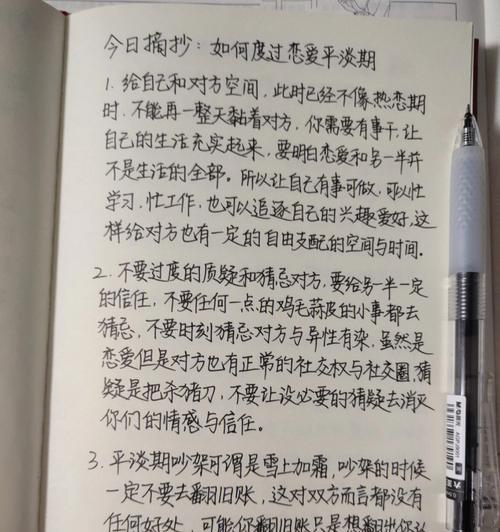 今日摘抄：如何度过恋爱平淡期
1. 给自己和对方空间，此时已经不像热恋期
时，不能再一整天黏着对方，你需要有事干，让
自己的生活充实起来，要明白恋爱和另一半并
不是生活的全部。所以让自己有事可做，可以忙
学习，忙工作，也可以追逐自己的兴趣爱好，这
样给对方也有一定的自由支配的空间与时间。
2. 不要过度的质疑和猜忌对方，要给另一半一定
的信任，不要任何一点的鸡毛蒜皮的小事都去
猜忌，不要时刻猜忌对方与异性有染，虽然是
恋爱但是对方也有正常的社交权与社交圈，猜
疑是把杀猪刀，不要让没必要的猜疑去消灭
你们的情感与信任。
3. 平淡期吵架可谓是雪上加霜，吵架的时候
一定不要去翻旧账，这对双方而言都没有
任何好处，可能你翻旧账只是想
M&G